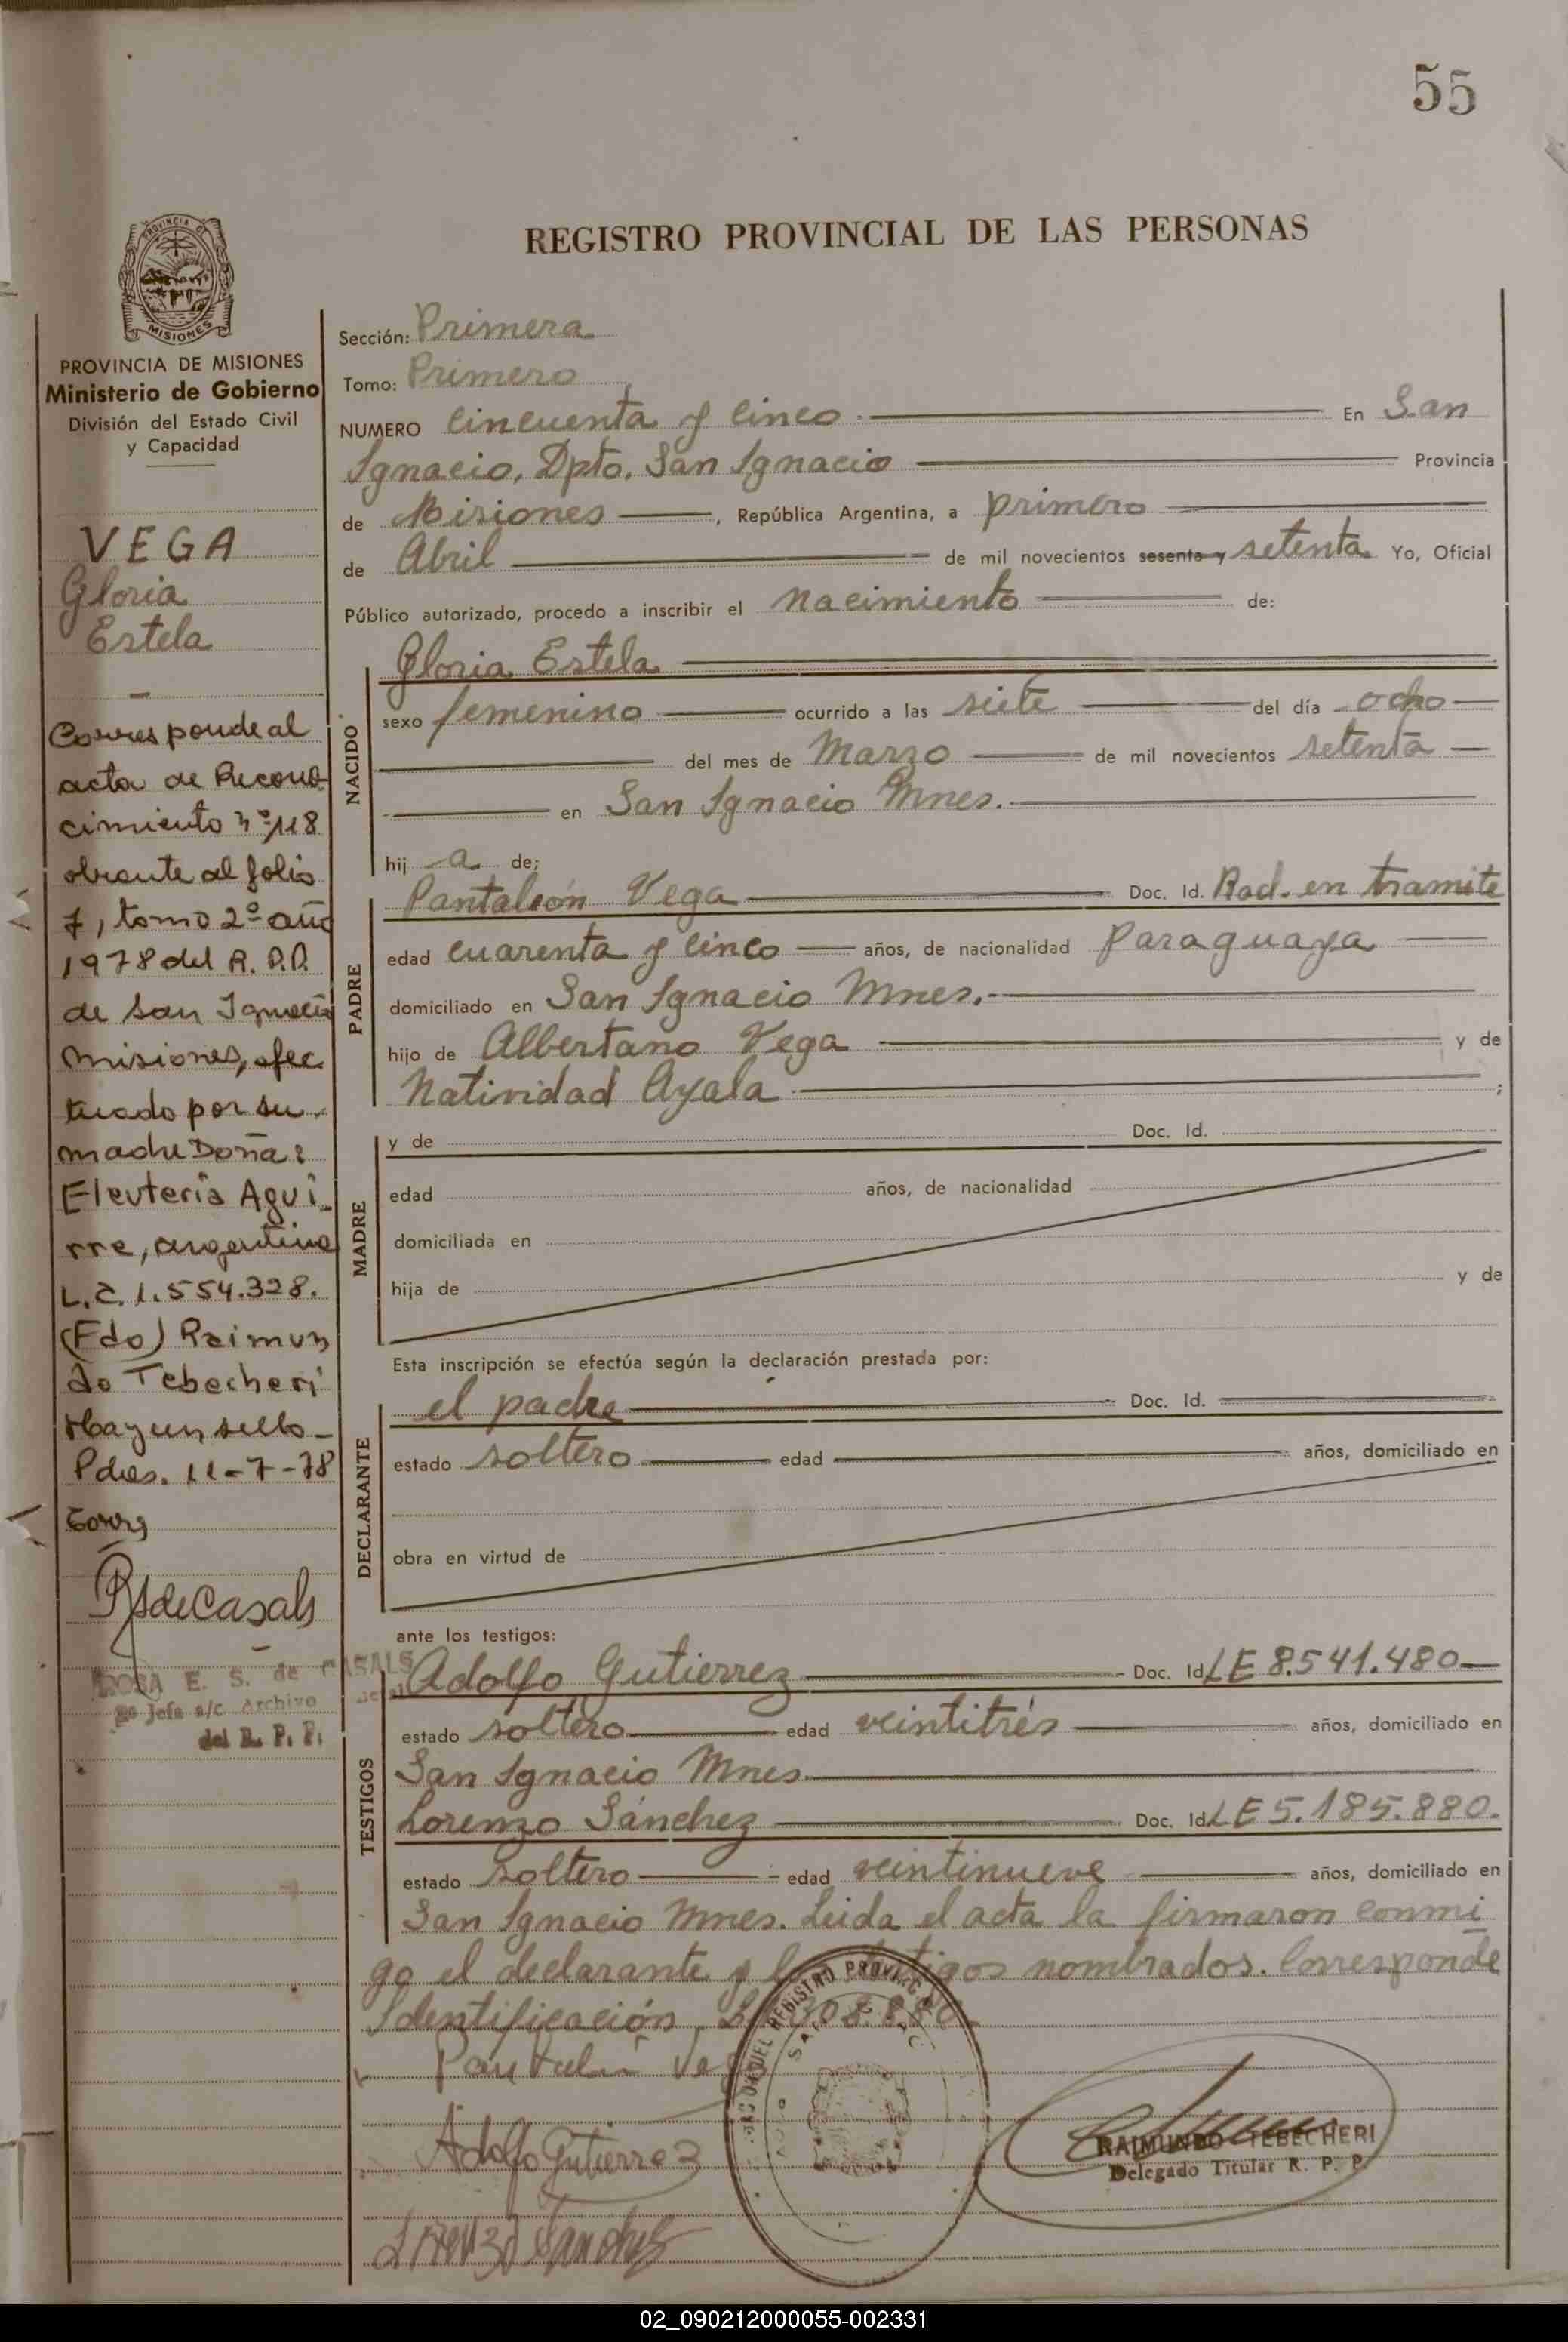 55
PROVINCIA DE
MISIONES
PROVINCIA DE MISIONES
Ministerio de Gobierno
División del Estado Civil
y Capacidad
VEGA
Gloria
Estela
Corresponde al
acta de Recono
cimiento nº 118
obrante al folio
7, tomo 2º año
1978 del R.P.P.
de San Ignacio
Misiones, efec
tuado por su
madre Doña:
Eleuteria Agui
rre, argentina
L.C. 1.554.328.
(Fdo) Raimun
do Tebecheri
Hay un sello -
Pdas. 11-7-78
RSdeCasals
ROSA E. S. de CASALS
Jefe a/c Archivo
del R. P. P.
REGISTRO PROVINCIAL DE LAS PERSONAS
Sección: Primera
Tomo: Primero
NUMERO Cincuenta y Cinco En San
Ignacio, Dpto. San Ignacio Provincia
de Misiones, República Argentina, a primero
de Abril de mil novecientos sesenta y setenta Yo, Oficial
Público autorizado, procedo a inscribir el Nacimiento de:
NACIDO
Gloria Estela
sexo femenino ocurrido a las siete del día ocho
del mes de Marzo de mil novecientos setenta
en San Ignacio Mnes.
hij a de;
PADRE
Pantaleón Vega Doc. Id. Rad. en tramite
edad cuarenta y cinco años, de nacionalidad paraguaya
domiciliado en San Ignacio Mnes.
hijo de Albertano Vega y de
Natividad Ayala ;
MADRE
y de Doc. Id.
edad años, de nacionalidad
domiciliada en
hija de y de
Esta inscripción se efectúa según la declaración prestada por:
DECLARANTE
el padre Doc. Id.
estado soltero edad años, domiciliado en
obra en virtud de
ante los testigos:
TESTIGOS
Adolfo Gutierrez Doc. Id. LE 8.541.480
estado soltero edad veintitrés años, domiciliado en
San Ignacio Mnes.
Lorenzo Sánchez Doc. Id. LE 5.185.880.
estado soltero edad veintinueve años, domiciliado en
San Ignacio Mnes. Leida el acta la firmaron conmi
go el declarante y los testigos nombrados. Corresponde
Identificación
Pantaleón Vega
Adolfo Gutierrez
Lorenzo Sanchez
DEL REGISTRO PROVINC
RAIMUNDO TEBECHERI
Delegado Titular R. P. P.
02_090212000055-002331